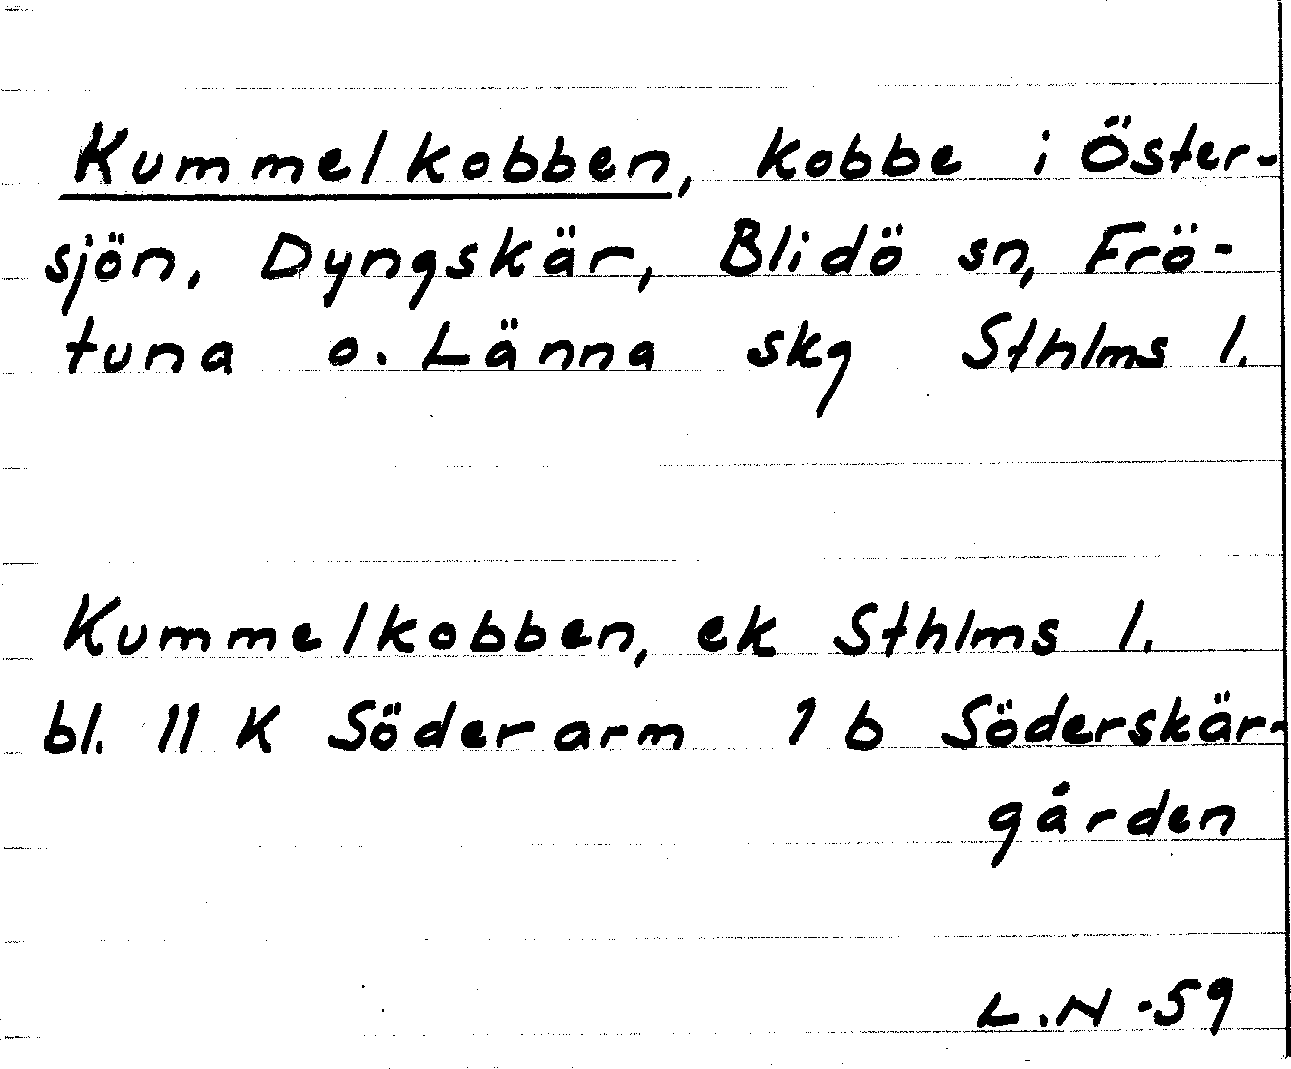 Kummelkobben, kobbe i Öster-
sjön, Dyngskär, Blidö sn, Frö-
tuna o. Länna skg Sthlms l.
Kummelkobben, ek Sthlms l.
bl. 11 K Söderarm 1 b Söderskär-
gården
L.N -59